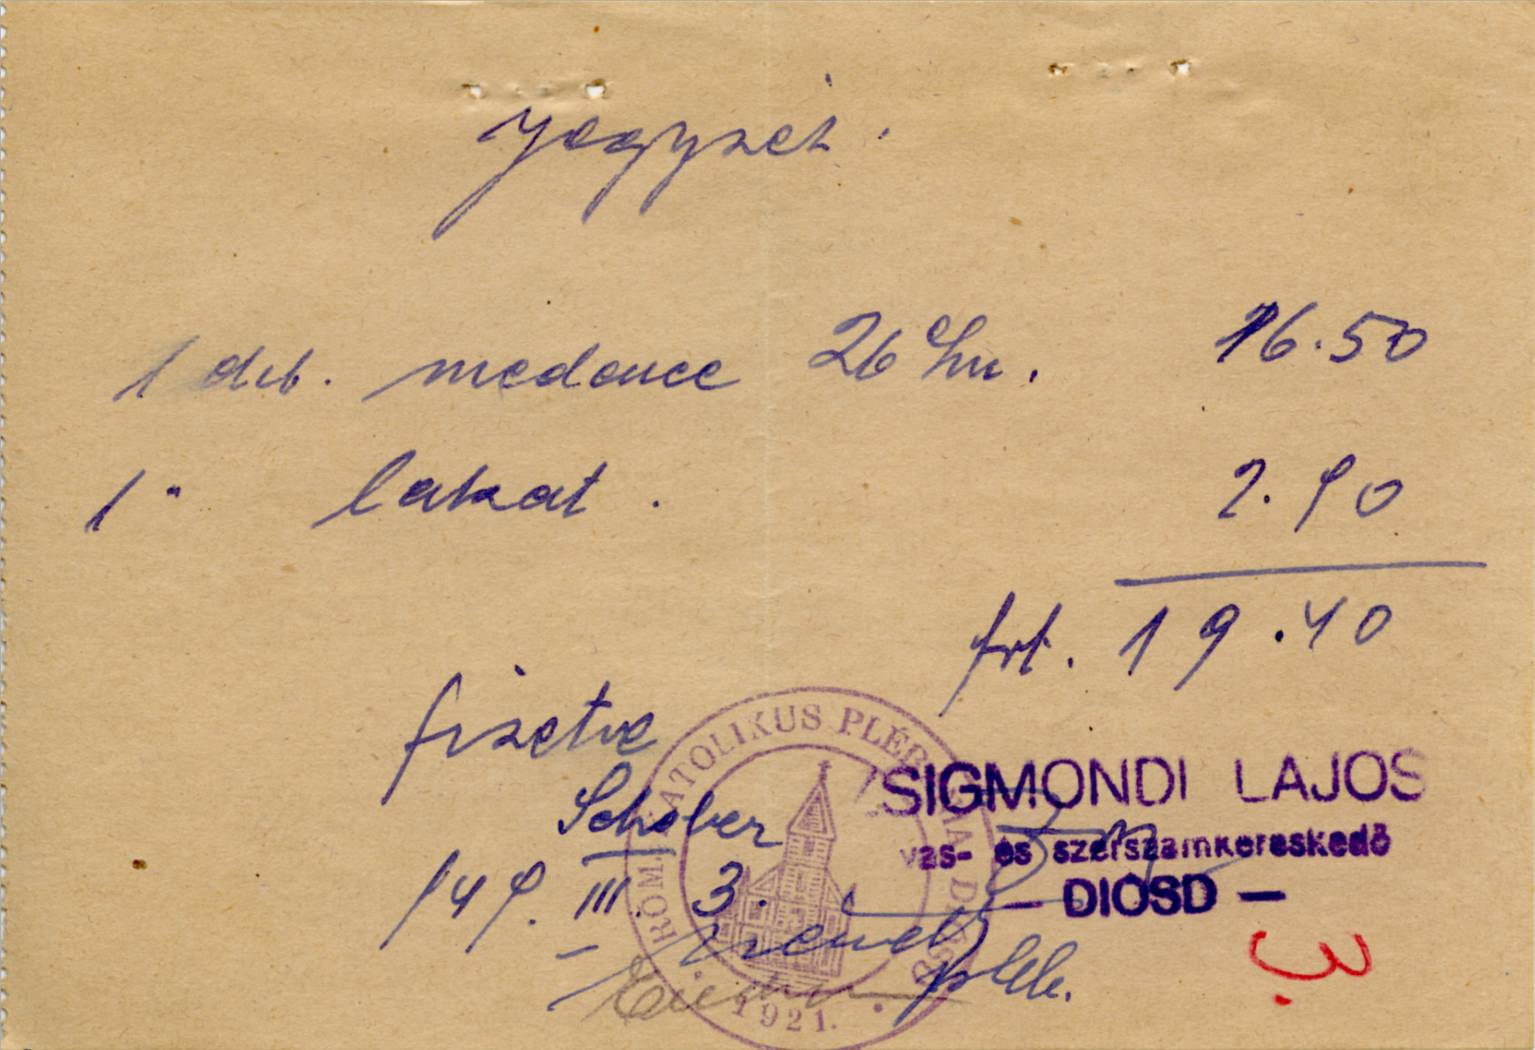 Jegyzet.
1 drb. medence 26 c/m. 16.50
1 " lakat. 2.90
frt. 19.40
fizetve
Schober
949. III. 3.
plb.
RÓM. KATOLIKUS PLÉBÁNIA DIÓSD
1921.
SIGMONDI LAJOS
vas- és szerszámkereskedő
— DIÓSD —
3.